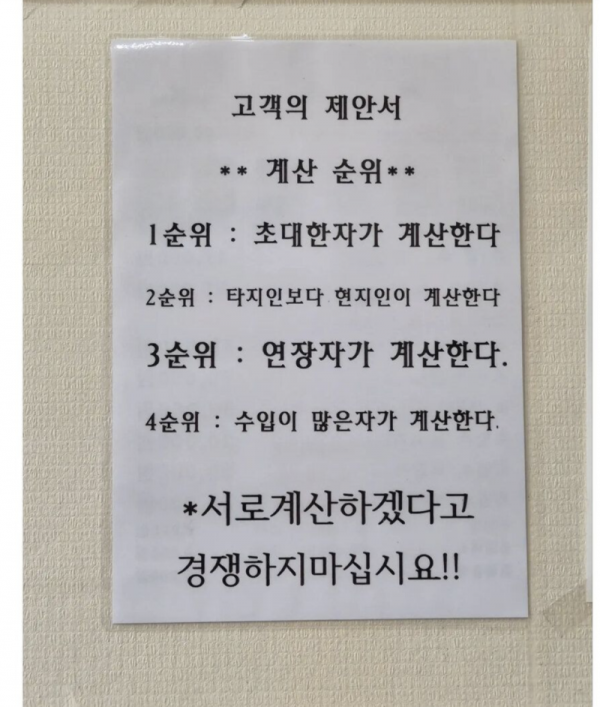 고객의 제안서
** 계산 순위**
1순위 : 초대한자가 계산한다
2순위 : 타지인보다 현지인이 계산한다
3순위 : 연장자가 계산한다.
4순위 : 수입이 많은자가 계산한다.
*서로계산하겠다고
경쟁하지마십시요!!